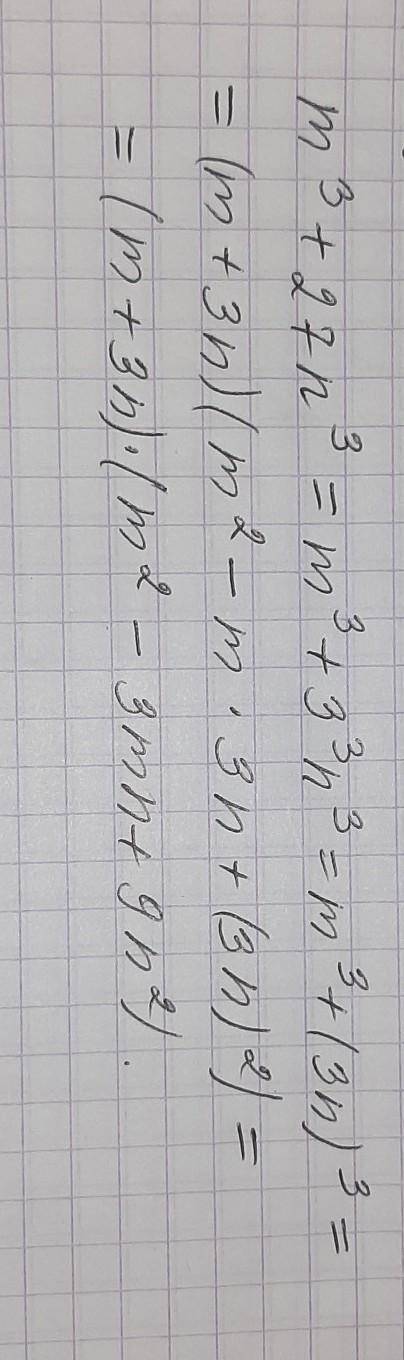 m³ + 27n³ = m³ + 3³n³ = m³ + (3n)³ =
= (m + 3n)(m² - m · 3n + (3n)²) =
= (m + 3n) · (m² - 3mn + 9n²).